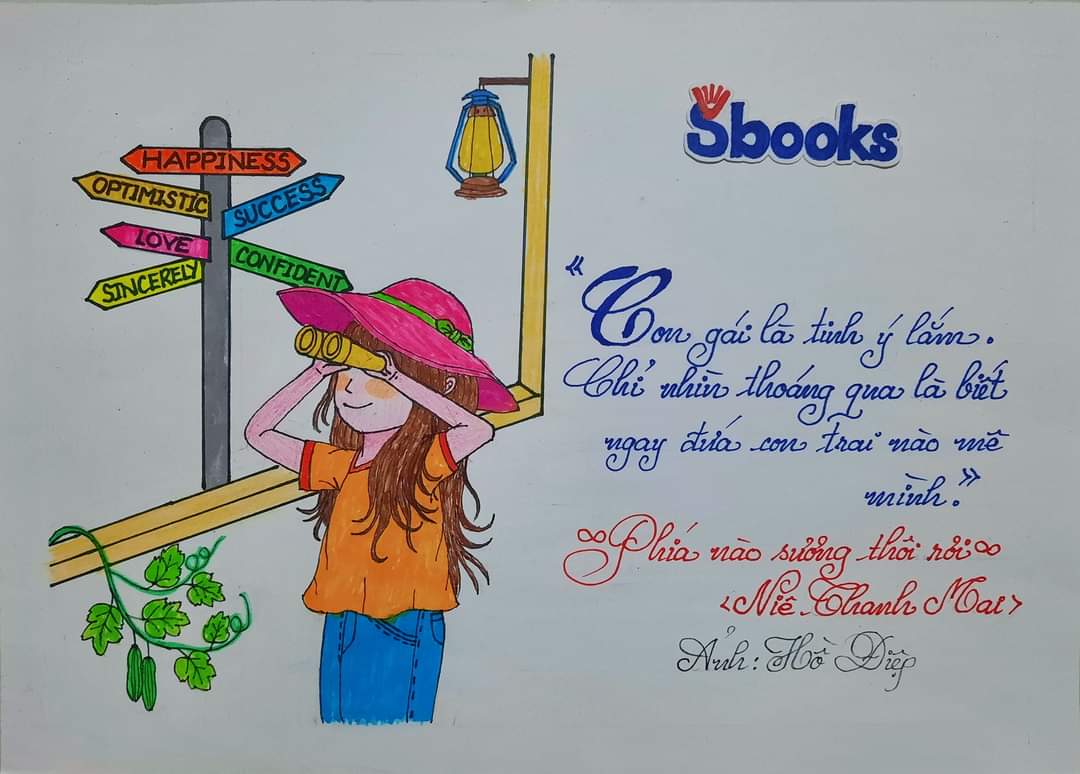 Sbooks
HAPPINESS
OPTIMISTIC
SUCCESS
LOVE
CONFIDENT
SINCERELY
"Con gái là tinh ý lắm.
Chỉ nhìn thoáng qua là biết
ngay đứa con trai nào mê
mình."
Phía nào sương thôi rơi
<Niê Thanh Mai>
Ảnh: Hồ Điệp